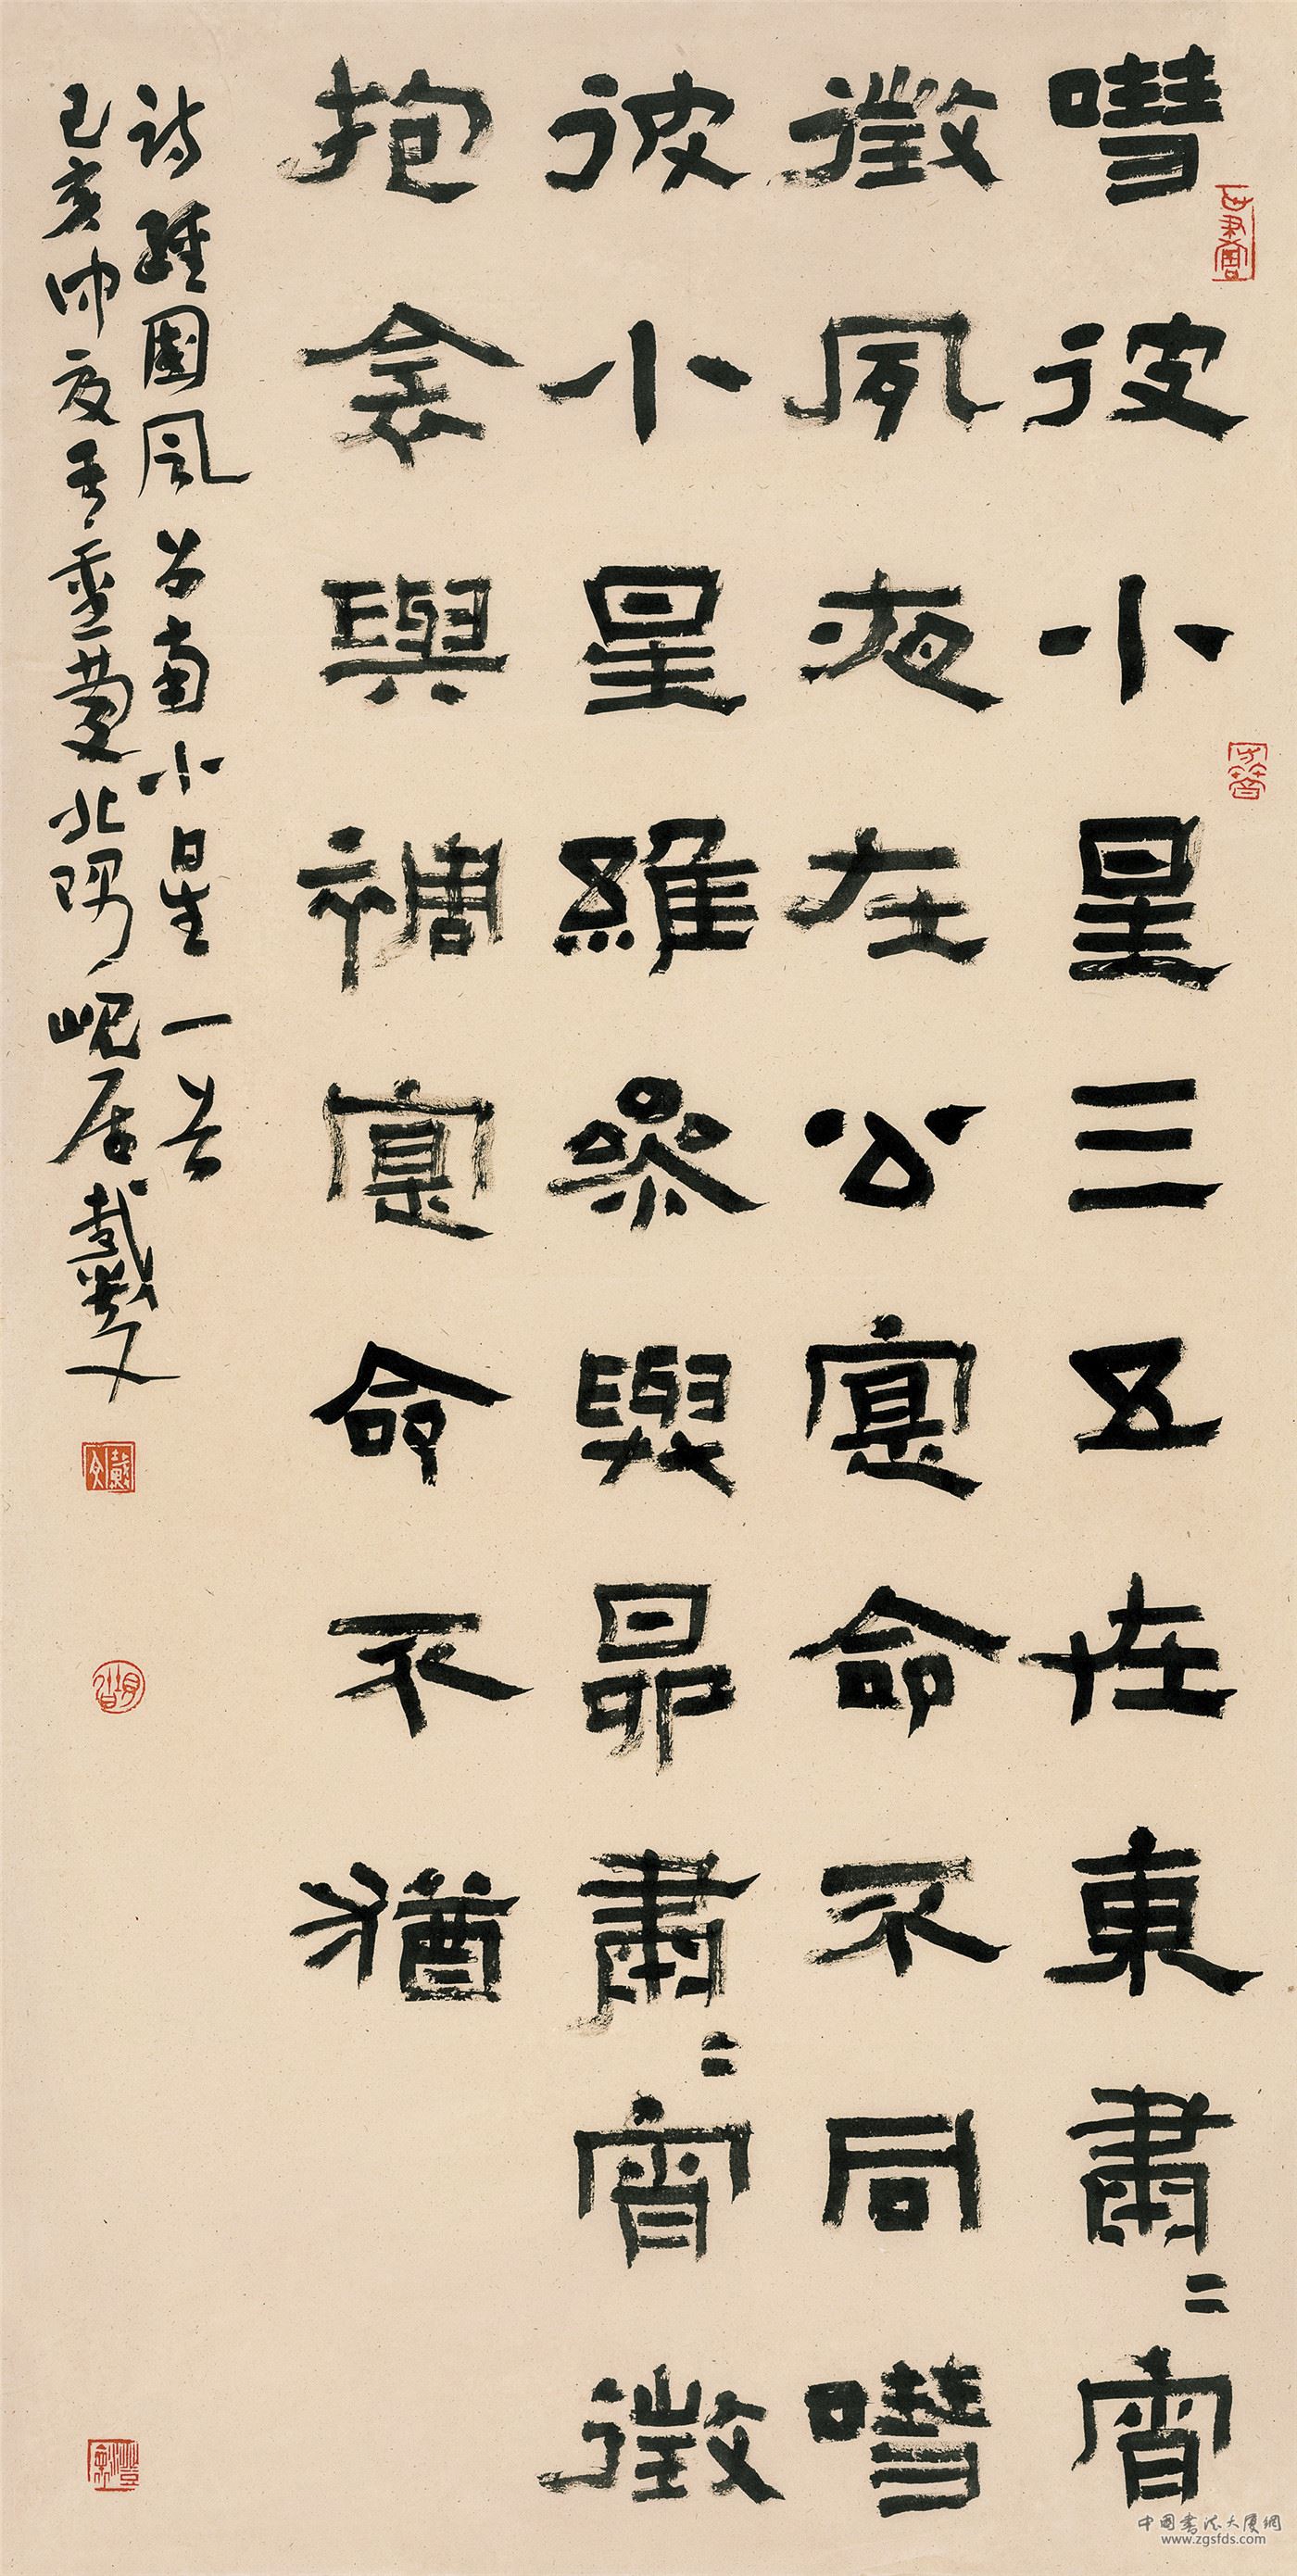 嘒彼小星三五在東肅〻宵
徵夙夜在公寔命不同嘒
彼小星維參與昴肅〻宵徵
抱衾與裯寔命不猶
詩經國風召南小星一首
己亥仲夏于重慶北隅峴居戴文
戴文
中國書法大廈網
www.zgsfds.com